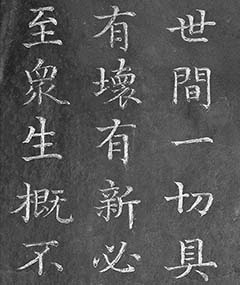 世間一切具
有壞有新必
至眾生概不